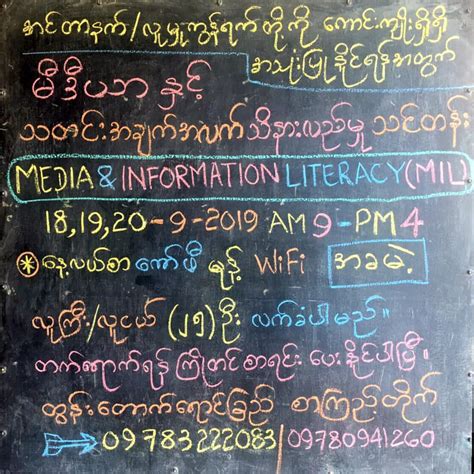 အင်တာနက်/လူမှုကွန်ရက်တို့ကို ကောင်းကျိုးရှိရှိ
အသုံးပြုနိုင်ရန်အတွက်
မီဒီယာ နှင့်
သတင်းအချက်အလက်သိနားလည်မှု သင်တန်း
MEDIA & INFORMATION LITERACY (MIL)
18,19,20-9-2019 AM 9-PM 4
နေ့လယ်စာ ကော်ဖီ မုန့် WiFi အခမဲ့
လူကြီး/လူငယ် (၂၅) ဦး လက်ခံပါမည်။
တက်ရောက်ရန် ကြိုတင်စာရင်း ပေးနိုင်ပါပြီ။
ထွန်းတောက်ရောင်ခြည် စာကြည့်တိုက်
09783222083/09780941260